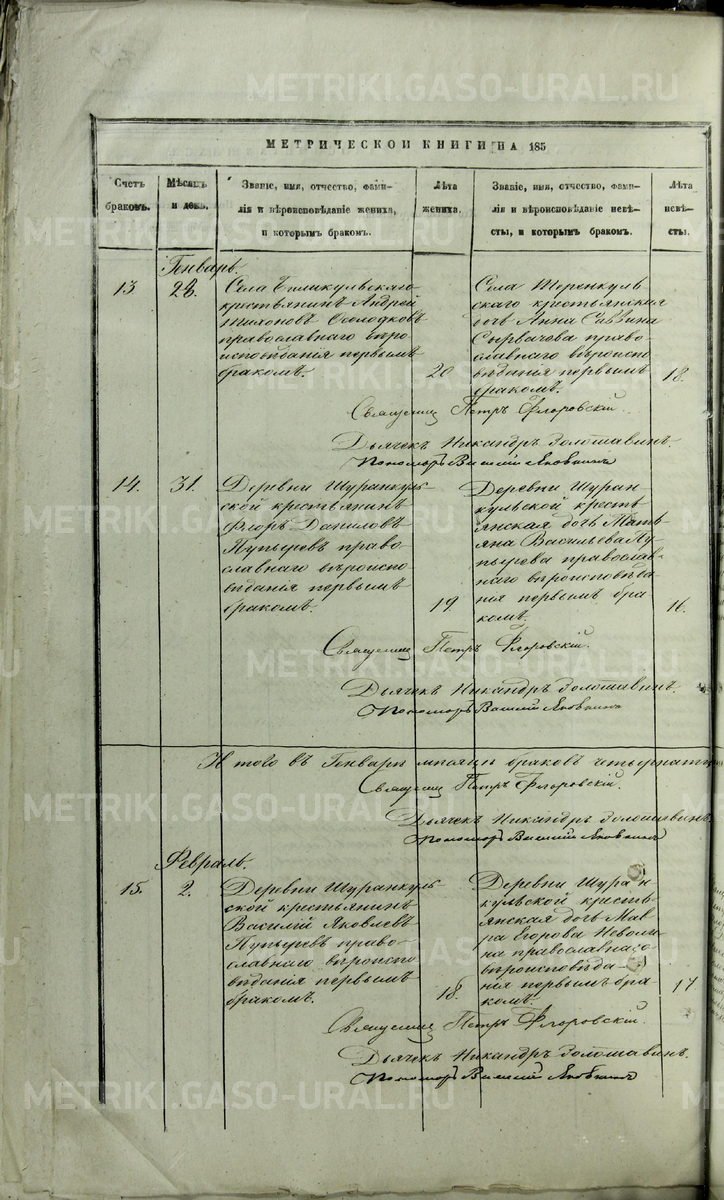 METRIKI.GASO-URAL.RU
МЕТРИЧЕСКОЙ КНИГИ НА 185
Счетъ
браковъ.
Мѣсяцъ
и день.
Званіе, имя, отчество, фами-
лія и вѣроисповѣданіе жениха,
и которымъ бракомъ.
Лѣта
жениха.
Званіе, имя, отчество, фами-
лія и вѣроисповѣданіе невѣ-
сты, и которымъ бракомъ.
Лѣта
невѣ-
сты.
Генварь.
13
28.
Села
крестьянинъ Андрей
Тихоновъ
православнаго вѣро-
исповѣданія первымъ
бракомъ.
20
Села Теренкуль
скаго крестьянская
дочь Анна Саввина
право-
славнаго вѣроиспо
вѣданія первымъ
бракомъ.
18.
Священникъ Петръ Флоровскій.
Дьячекъ Никандръ Золотавинъ.
Пономарь Василій Яковкинъ
14.
31.
Деревни Шуранкуль-
ской крестьянинъ
Флоръ Даниловъ
Пупыревъ право
славнаго вѣроиспо
вѣданія первымъ
бракомъ.
19.
Деревни Шуран
кульской кресть
янская дочь Тать
яна Васильева Пу-
пырева православ-
наго вѣроисповѣда-
нія первымъ бра
комъ.
16.
Священникъ Петръ Флоровскій.
Дьячекъ Никандръ Золотавинъ.
Пономарь Василій Яковкинъ
Итого въ Генварѣ мѣсяцѣ браковъ
Священникъ Петръ Флоровскій.
Дьячекъ Никандръ Золотавинъ
Пономарь Василій Яковкинъ
Февраль.
15.
2.
Деревни Шуранкуль-
ской крестьянинъ
Василій Яковлевъ
Пупыревъ право-
славнаго вѣроиспо
вѣданія первымъ
бракомъ.
18.
Деревни Шуран
кульской кресть-
янская дочь Мав
ра Егорова Неволи
на православнаго
вѣроисповѣда-
нія первымъ бра
комъ.
17
Священникъ Петръ Флоровскій.
Дьячекъ Никандръ Золотавинъ.
Пономарь Василій Яковкинъ